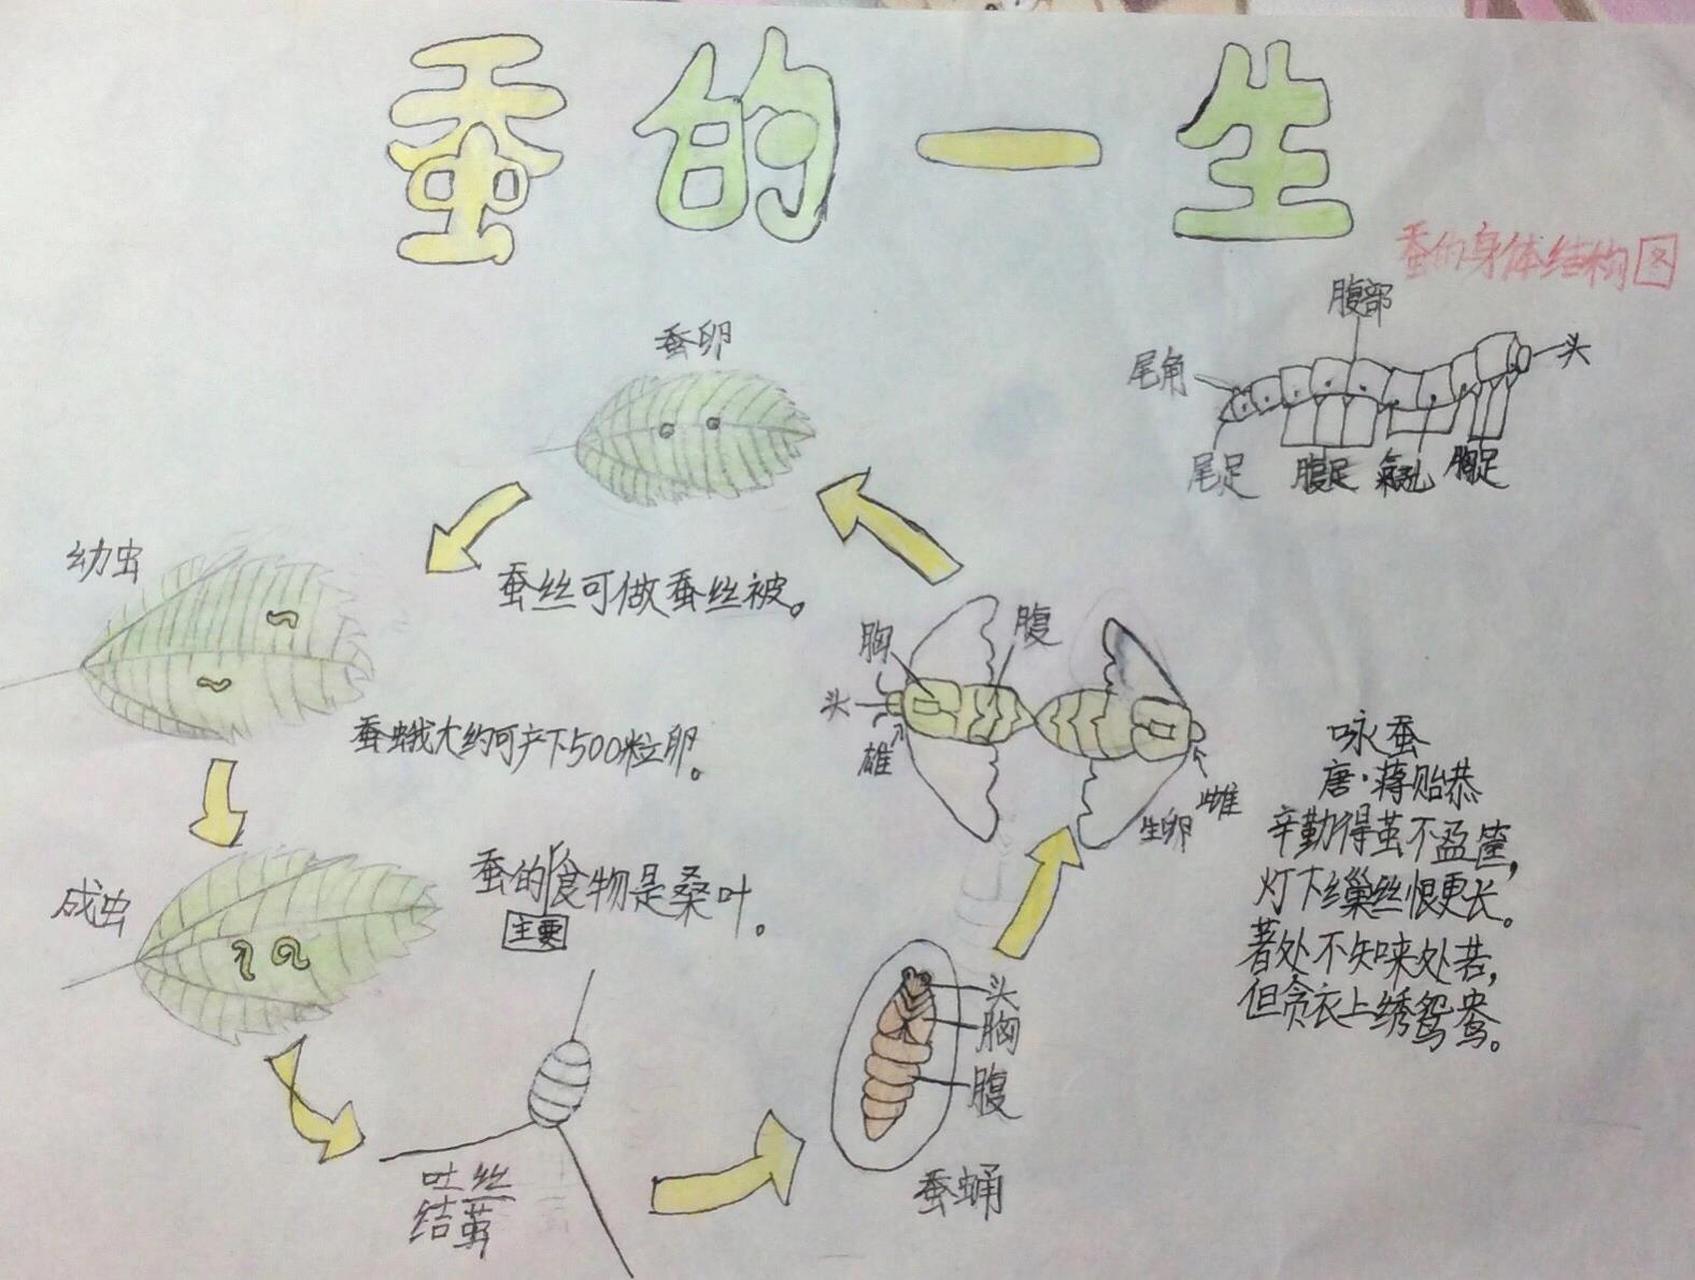 蚕的一生
蚕的身体结构图
腹部
尾角
头
尾足
腹足
氣孔
胸足
蚕卵
幼虫
蚕丝可做蚕丝被。
蚕蛾大约可产下500粒卵。
成虫
蚕的食物是桑叶。
主要
吐丝
结茧
头
胸
腹
蚕蛹
胸
腹
头
雄
雌
生卵
咏蚕
唐·蒋贻恭
辛勤得茧不盈筐,
灯下缫丝恨更长。
著处不知来处苦,
但贪衣上绣鸳鸯。